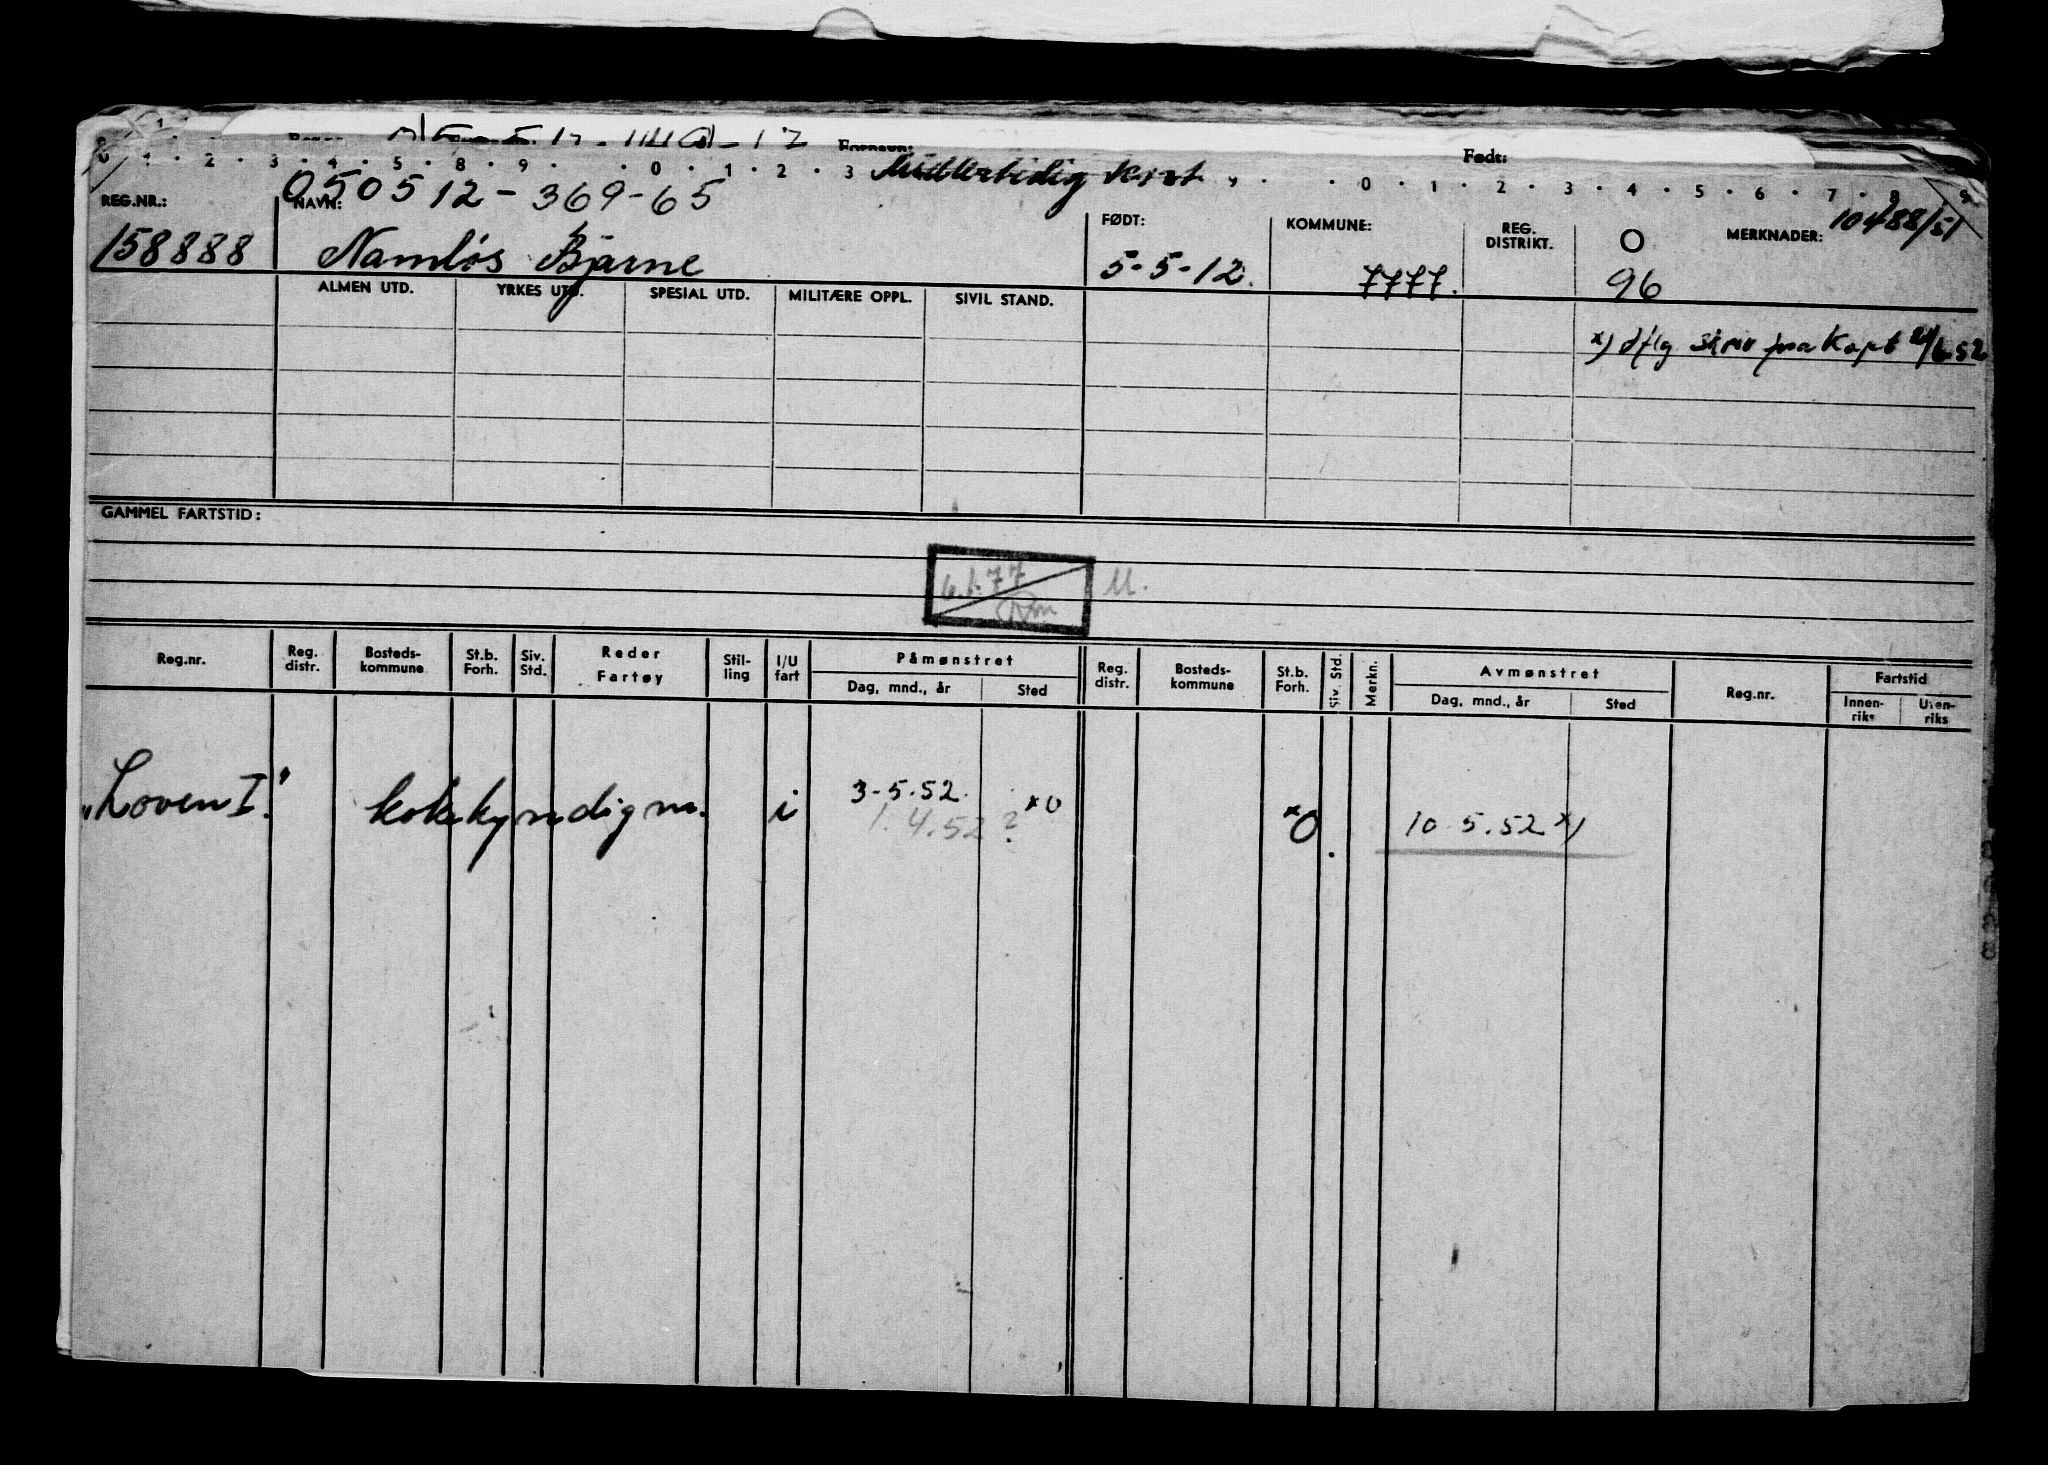 Født:
0 1 . 2 . 3 . 4 . 5 . 8 . 9 . . 0 . 1 . 2 . 3 Midlertidig kort . 0 . 1 . 2 . 3 . 4 . 5 . 6 . 7 . 8 . 9
050512-369-65
REG.NR.: NAVN: FØDT: KOMMUNE: REG. DISTRIKT. O MERKNADER: 10488/51
158888 Namløs Bjarne 5-5-12. 7777. 96
ALMEN UTD. YRKES UTD. SPESIAL UTD. MILITÆRE OPPL. SIVIL STAND.
x) iflg skriv fra Kapt 21/6 52
GAMMEL FARTSTID:
6.1.77 M.
Reg.nr. Reg. distr. Bosteds-kommune St.b. Forh. Siv. Std. Reder Fartøy Stil-ling I/U fart Påmønstret Reg. distr. Bosteds-kommune St.b. Forh. Siv. Std. Merkn. Avmønstret Reg.nr. Fartstid
Dag, mnd., år Sted Dag, mnd., år Sted Innen-riks Uten-riks
"Loven I" kokkyndig m. i 3-5.52. x0 x0 10 5.52 x)
1.4.52 ?